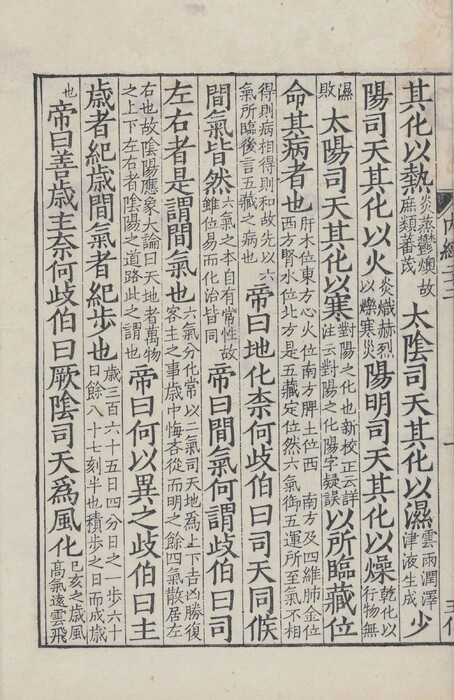 其化以熱炎蒸鬱燠故庶類蕃茂太陰司天其化以濕雲雨潤澤津液生成少
陽司天其化以火炎熾赫烈以爍寒災陽明司天其化以燥乾化以行物無
濕敗太陽司天其化以寒對陽之化也新校正云詳注云對陽之化陽字疑誤以所臨藏位
命其病者也肝木位東方心火位南方脾土位西南方及四維肺金位西方腎水位北方是五藏定位然六氣御五運所至氣不相
得則病相得則和故先以六氣所臨後言五藏之病也帝曰地化柰何歧伯曰司天同候
間氣皆然六氣之本自有常性故雖位易而化治皆同帝曰間氣何謂歧伯曰司
左右者是謂間氣也六氣分化常以二氣司天地爲上下吉凶勝復客主之事歲中悔吝從而明之餘四氣散居左
右也故陰陽應象大論曰天地者萬物之上下左右者陰陽之道路此之謂也帝曰何以異之歧伯曰主
歲者紀歲間氣者紀步也歲三百六十五日四分日之一步六十日餘八十七刻半也積步之日而成歲
也帝曰善歲主柰何歧伯曰厥陰司天爲風化巳亥之歲風高氣遠雲飛